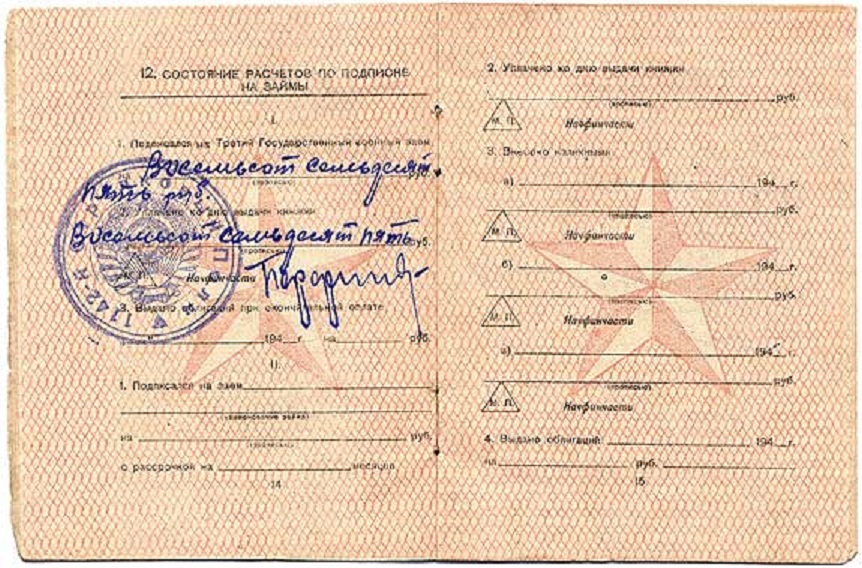 12. СОСТОЯНИЕ РАСЧЕТОВ ПО ПОДПИСКЕ
НА ЗАЙМЫ
I.
1. Подписался на Третий Государственный военный заем
Восемьсот семьдесят
пять руб.
(прописью)
2. Уплачено ко дню выдачи книжки
Восемьсот семьдесят пять руб.
(прописью)
Начфинчасти
3. Выдано облигаций при окончательной оплате
194 г. на руб.
II.
1. Подписался на заем
(наименование займа)
на руб.
(прописью)
с рассрочкой на месяцев
14
1142-й
2. Уплачено ко дню выдачи книжки
руб.
(прописью)
М. П. Начфинчасти
3. Внесено наличными:
а) 194 г.
руб.
(прописью)
М. П. Начфинчасти
б) 194 г.
руб.
(прописью)
М. П. Начфинчасти
в) 194 г.
руб.
(прописью)
М. П. Начфинчасти
4. Выдано облигаций 194 г.
на руб.
15